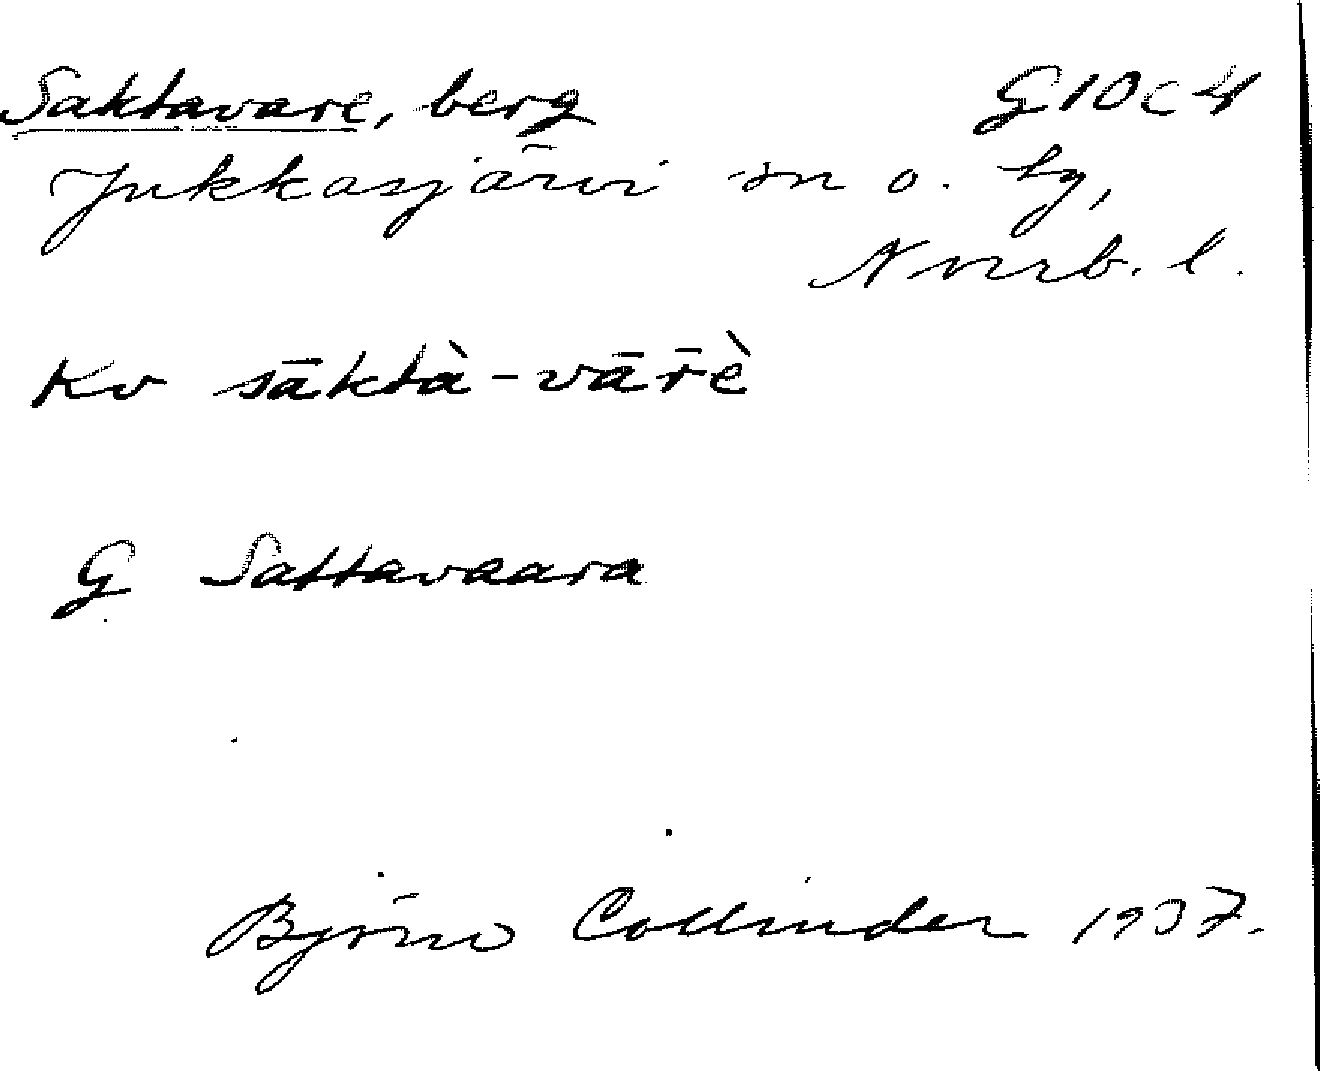 Saktavare, berg G10c4
Jukkasjärvi sn o. tg,
Norrb. l.
Kv sāktà-vār̄è
G Sattavaara
Björn Collinder 1937.